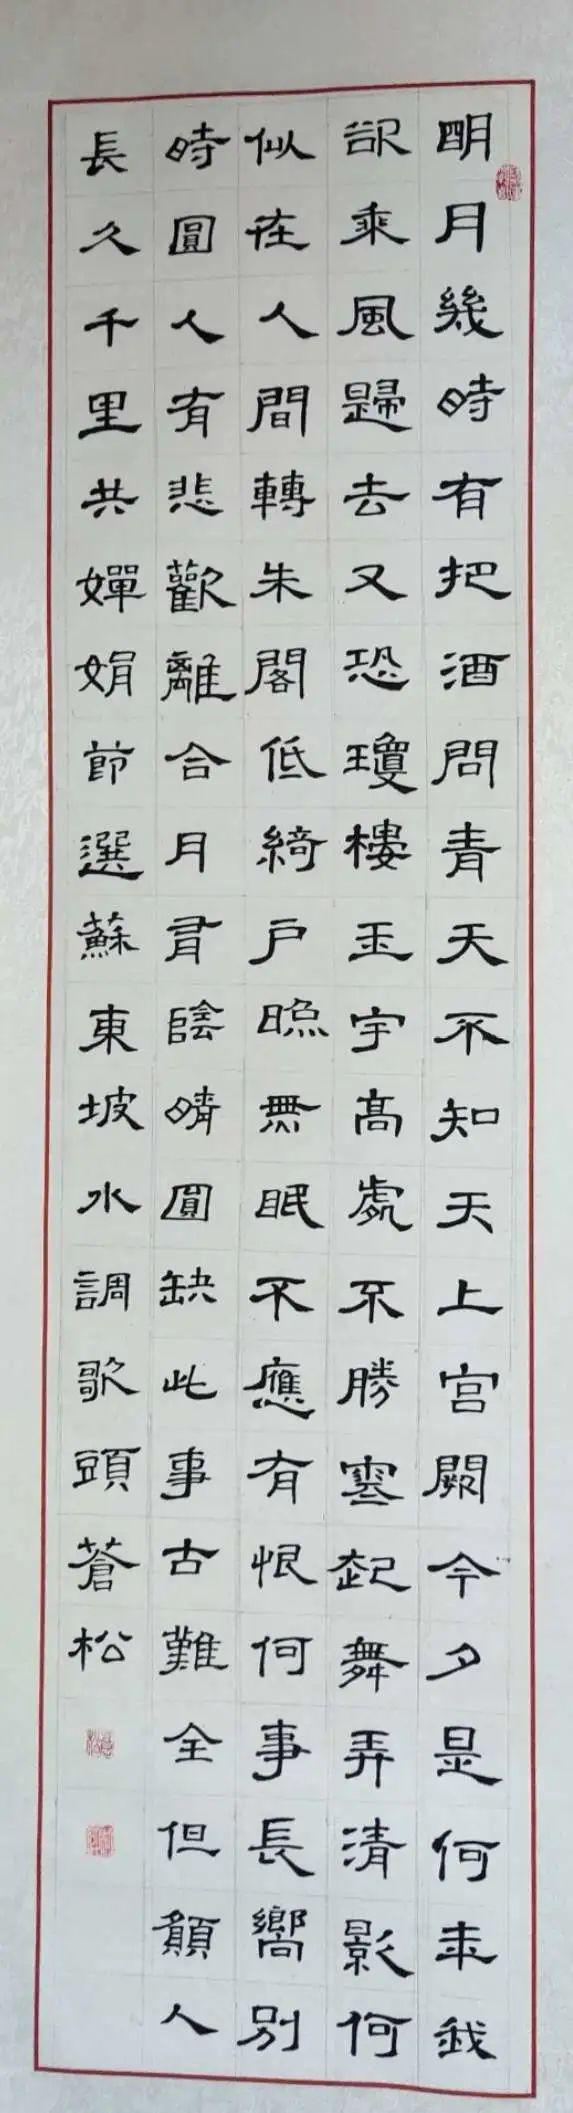 明月幾時有把酒問青天不知天上宫闕今夕是何年我
欲乘風歸去又恐瓊樓玉宇高處不勝寒起舞弄清影何
似在人間轉朱閣低綺戶照無眠不應有恨何事長嚮別
時圓人有悲歡離合月有陰晴圓缺此事古難全但願人
長久千里共嬋娟節選蘇東坡水調歌頭蒼松